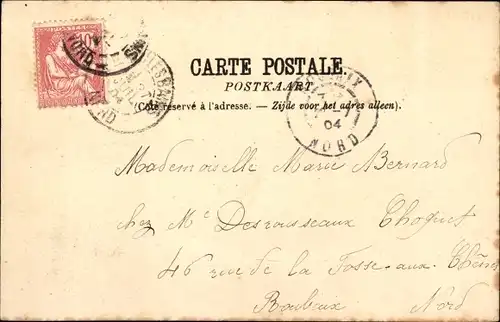 CARTE POSTALE
POSTKAART
(Côté réservé à l'adresse. — Zijde voor het adres alleen).
ROUBAIX
04
NORD
NORD
Mademoiselle Marie Bernard
chez Mr Desrousseaux Choquet
46 rue de la Fosse-aux-Chênes
Roubaix Nord